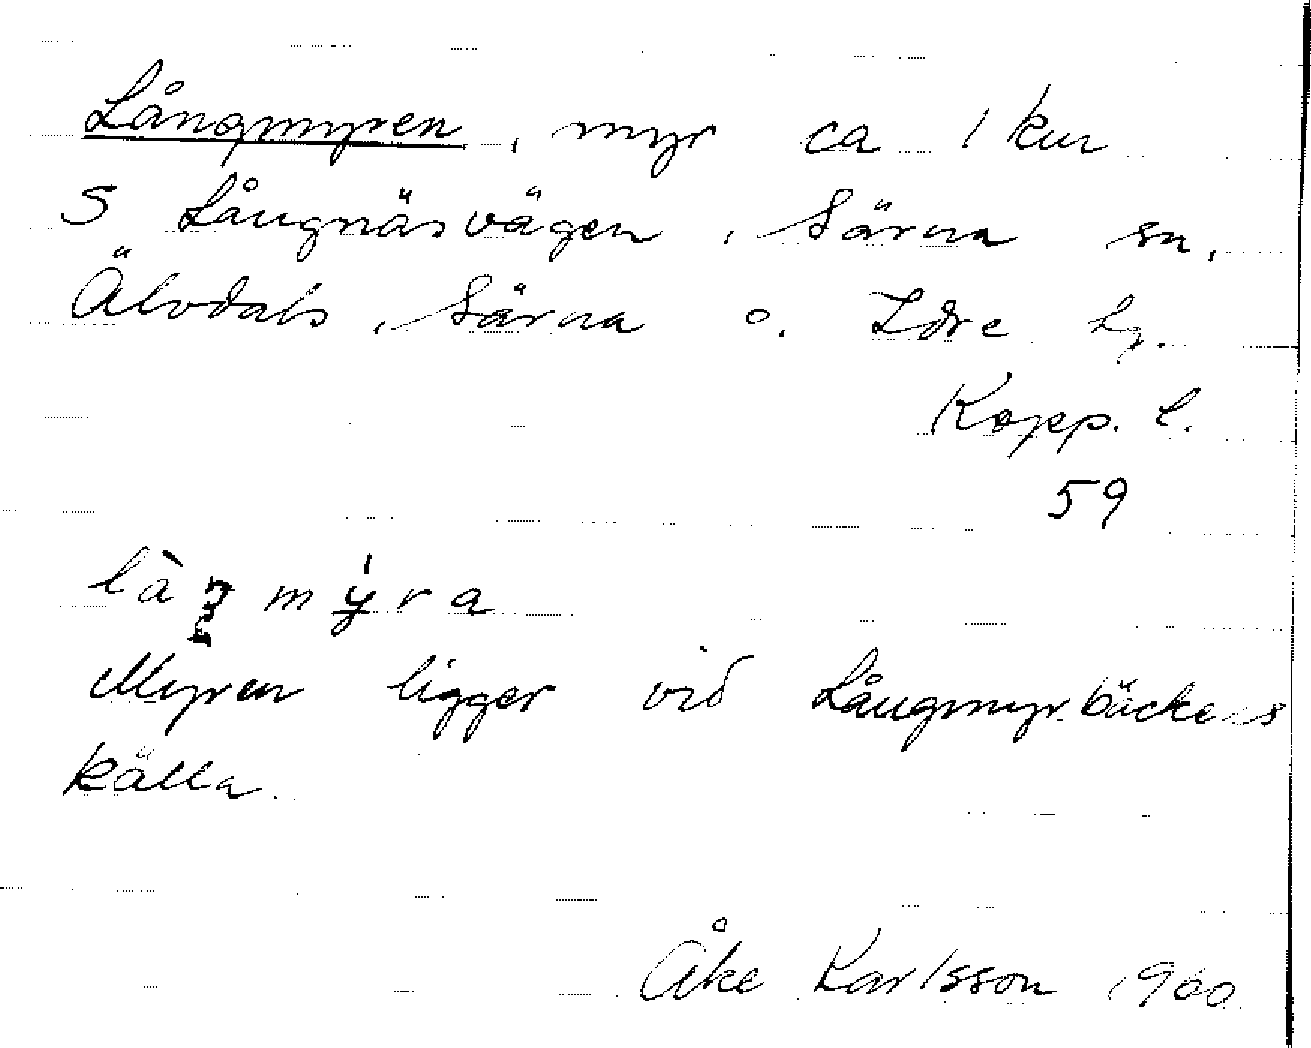 Långmyren, myr ca 1 km
S Långnäsvägen, Särna sn,
Älvdals, Särna o. Idre lg.
Kopp. l.
59
Myren ligger vid Långmyrbäckens
källa.
Åke Karlsson 1960